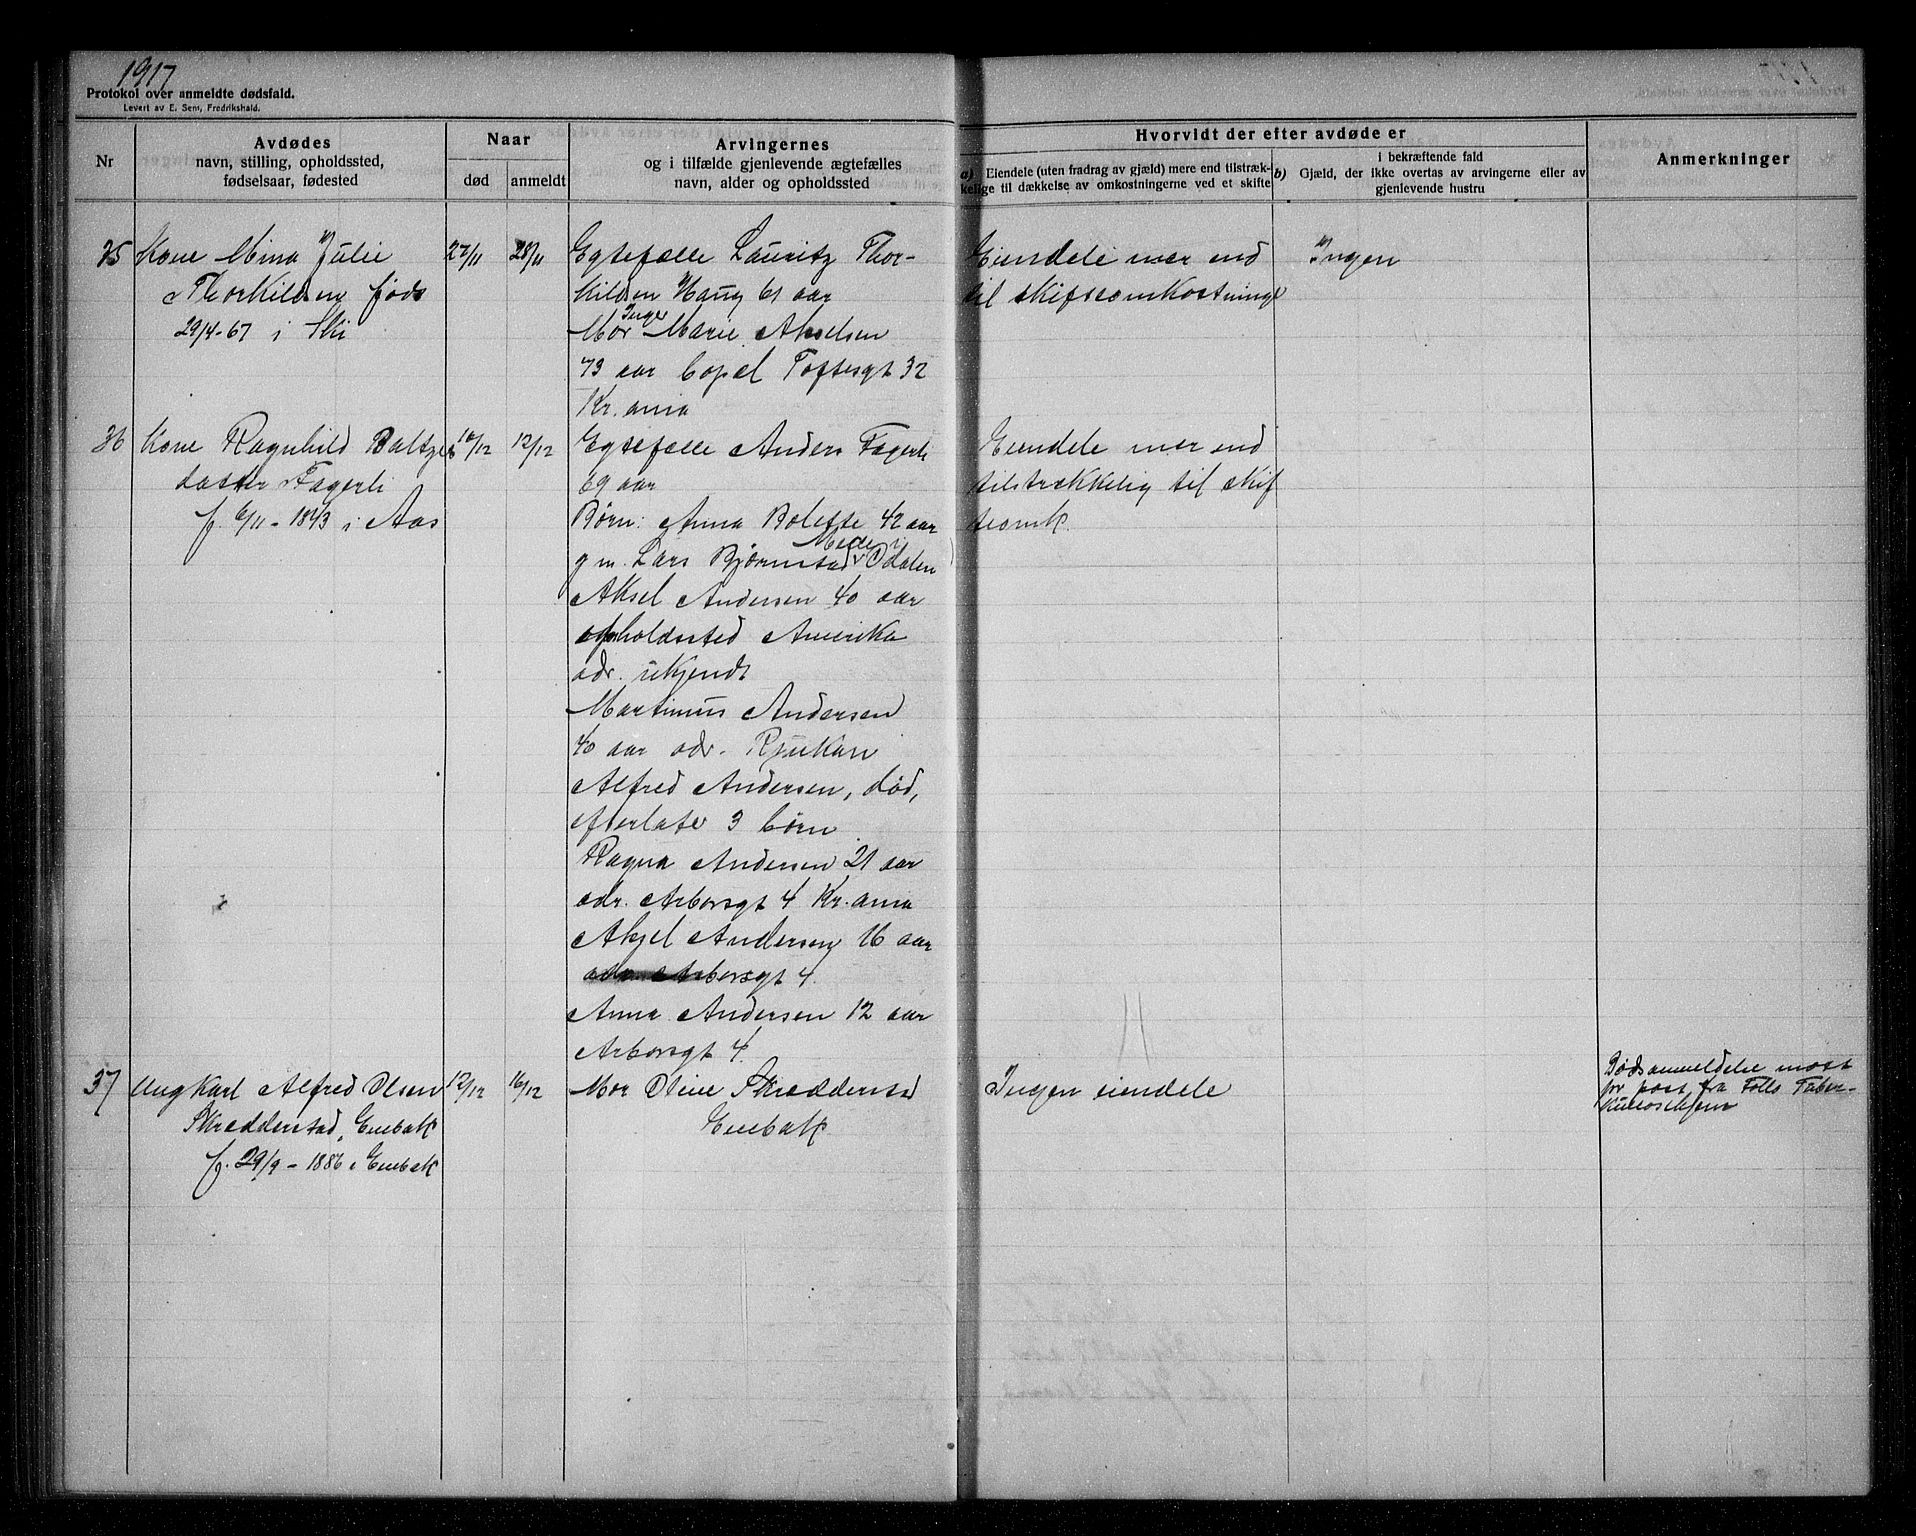 1917
Protokol over anmeldte dødsfald.
Levert av E. Sem, Fredrikshald.
Nr
Avdødes
navn, stilling, opholdssted,
fødselsaar, fødested
Naar
død
anmeldt
Arvingernes
og i tilfælde gjenlevende ægtefælles
navn, alder og opholdssted
Hvorvidt der efter avdøde er
a) Eiendele (uten fradrag av gjæld) mere end tilstræk-
kelige til dækkelse av omkostningerne ved et skifte
b) i bekræftende fald
Gjæld, der ikke overtas av arvingerne eller av
gjenlevende hustru
Anmerkninger
35
Kone Mina Julie
Thorkildsen født
29/4-67 i Ski
27/11
28/11
Egtefælle Lauritz Thor-
kildsen Haug 61 aar
Mor Inger Marie Akselsen
73 aar bopæl Toftesgt 32
Kr.ania
Eiendele mer end
til skifteomkostninge
Ingen
36
Kone Ragnhild Baltzers
datter Fagerli
f. 6/11-1843 i Aas
10/12
12/12
Egtefælle Anders Fagerli
69 aar
Børn: Anna Bolette 42 aar
g m. Lars Bjørnstad Odalen
Aksel Andersen 40 aar
opholdssted Amerika
adr. ukjendt
Martinius Andersen
40 aar adr. Rjukan
Alfred Andersen, død,
efterlater 3 børn
Ragna Andersen 21 aar
adr. Arborsgt 4 Kr.ania
Aksel Andersen 16 aar
adr. Arborsgt 4.
Anna Andersen 12 aar
Arborsgt 4.
Eiendele mer end
tilstrækkelig til skif
teomk.
37
Ungkarl Alfred Olsen
Skrædderstad, Enebak
f. 29/9-1886 i Enebak
12/12
16/12
Mor Oline Skrædderstad
Enebak
Ingen eiendele
Dødsanmeldelse mott
pr post fra Follo Tuber-
kulosehjem